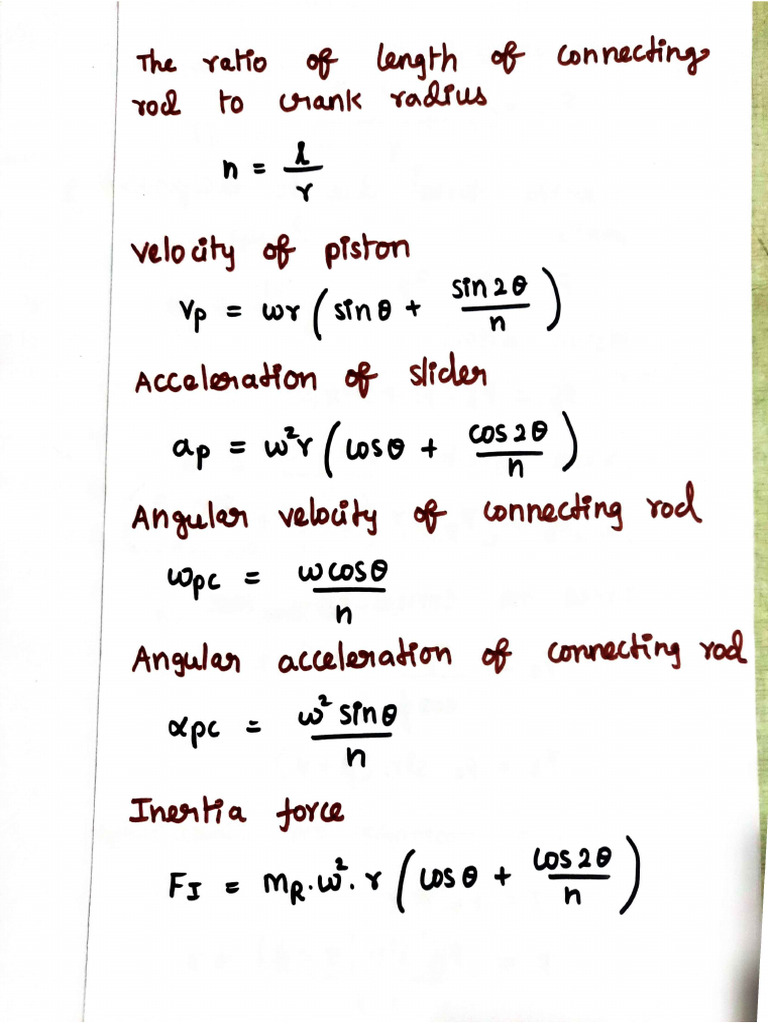 The ratio of length of connecting
rod to crank radius
n = l/r
Velocity of piston
Vp = ωr (sinθ + sin2θ/n)
Acceleration of slider
ap = ω²r (cosθ + cos2θ/n)
Angular velocity of connecting rod
ωpc = ωcosθ/n
Angular acceleration of connecting rod
αpc = ω² sinθ/n
Inertia force
FI = mR.ω².r (cosθ + cos2θ/n)